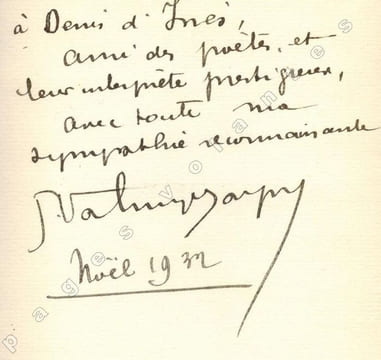 à Denis d'Inès,
ami des poètes, et
leur interprète prestigieux,
avec toute ma
sympathie reconnaissante
Noël 1932
pages volantes